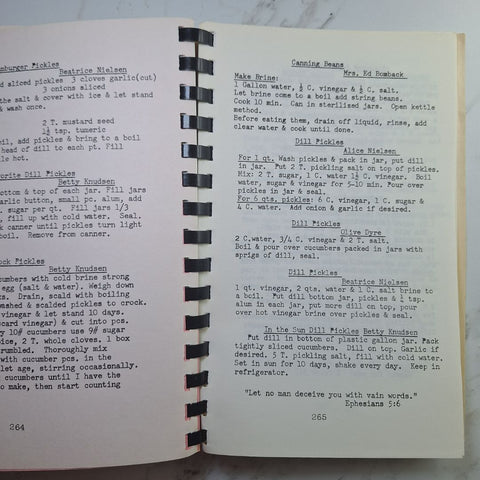 mburger Pickles
Beatrice Nielsen
d sliced pickles 3 cloves garlic(cut)
3 onions sliced
the salt & cover with ice & let stand
& wash once.
2 T. mustard seed
1½ tsp. tumeric
oil, add pickles & bring to a boil
head of dill to each pt. Fill
le hot.
vorite Dill Pickles
Betty Knudsen
bottom & top of each jar. Fill jars
arlic button, small pc. alum, add
sugar per qt. Fill jars 1/3
, fill up with cold water. Seal.
k canner until pickles turn light
boil. Remove from canner.
ock Pickles
Betty Knudsen
cumbers with cold brine strong
egg (salt & water). Weigh down
ks. Drain, scald with boiling
washed & scalded pickles to crock.
vinegar & let stand 10 days.
card vinegar) & cut into pcs.
ery 10# cucumbers use 9# sugar
pice, 2 T. whole cloves, 1 box
rumbled. Thoroughly mix
with cucumber pcs. in the
let age, stirring occasionally.
cucumbers until I have the
o make, then start counting
264
Canning Beans
Mrs. Ed Bomback
Make Brine:
1 Gallon water, ½ C. vinegar & ½ C. salt.
Let brine come to a boil add string beans.
Cook 10 min. Can in sterilized jars. Open kettle
method.
Before eating them, drain off liquid, rinse, add
clear water & cook until done.
Dill Pickles
Alice Nielsen
For 1 qt. Wash pickles & pack in jar, put dill
in jar. Put 2 T. pickling salt on top of pickles.
Mix: 2 T. sugar, 1 C. water 1½ C. vinegar. Boil
water, sugar & vinegar for 5-10 min. Pour over
pickles in jar & seal.
For 6 qts. pickles: 6 C. vinegar, 1 C. sugar &
4 C. water. Add onion & garlic if desired.
Dill Pickles
Olive Dyre
2 C.water, 3/4 C. vinegar & 2 T. salt.
Boil & pour over cucumbers packed in jars with
sprigs of dill, seal.
Dill Pickles
Beatrice Nielsen
1 qt. vinegar, 2 qts. water & 1 C. salt brine to
a boil. Put dill bottom jar, pickles & ½ tsp.
alum in each jar, put more dill on top, pour
over hot vinegar brine over pickles & seal.
In the Sun Dill Pickles Betty Knudsen
Put dill in bottom of plastic gallon jar. Pack
tightly sliced cucumbers. Dill on top. Garlic if
desired. 5 T. pickling salt, fill with cold water.
Set in sun for 10 days, shake every day. Keep in
refrigerator.
"Let no man deceive you with vain words."
Ephesians 5:6
265